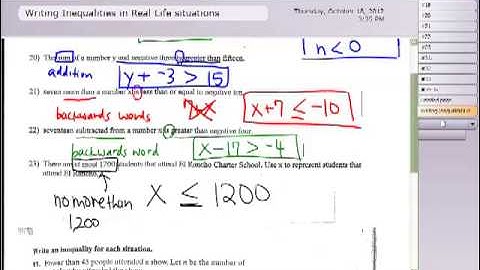 Writing Inequalities in Real Life situations
Thursday, October 18, 2012
3:35 PM
n < 0
20) The sum of a number y and negative three is greater than fifteen.
addition
y + -3 > 15
21) seven more than a number x is less than or equal to negative ten.
backwards words
7>x
x+7 ≤ -10
22) seventeen subtracted from a number x is greater than negative four.
backwards word
x-17 > -4
23) There are at most 1200 students that attend El Rancho Charter School. Use x to represent students that
attend El Rancho.
no more than
1200
x ≤ 1200
Write an inequality for each situation.
Fewer than 45 people attended a show. Let n be the number of